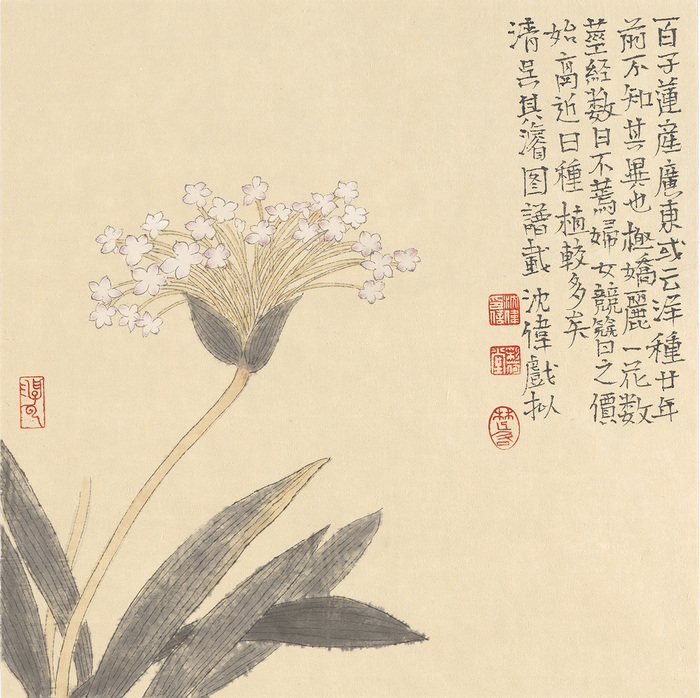 百子蓮產廣東或云洋種廿年
前不知其異也極嬌麗一花数
莖经数日不蔫婦女競簪日之價
始高近日種植較多矣
清吴其濬图譜載 沈偉戲拟